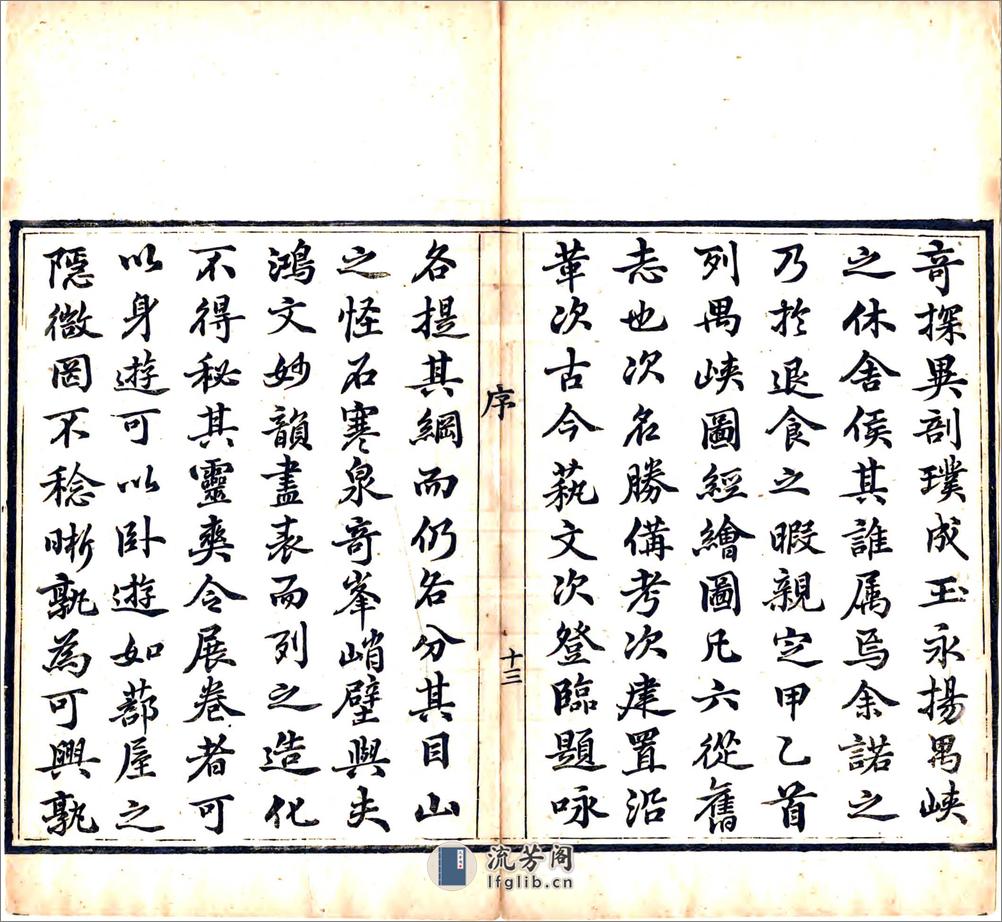 奇探異剖璞成玉永揚禺峽
之休舍侯其誰属焉余諾之
乃於退食之暇親定甲乙首
列禺峽圖經繪圖凡六從舊
志也次名勝備考次建置沿
革次古今蓺文次登臨題咏
序
十三
各提其綱而仍各分其目山
之怪石寒泉奇峯峭壁與夫
鴻文妙韻盡表而列之造化
不得秘其靈爽令展卷者可
以身遊可以卧遊如蔀屋之
隱微罔不稔晰孰為可興孰
流芳阁
lfglib.cn